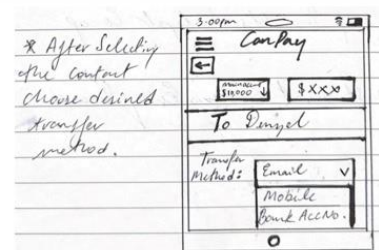 * After Selecting
the contact
choose desired
transfer
method.
3:00pm
CanPay
$10,000
$XXX
To Denzel
Transfer
Method:
Email
Mobile
Bank Acc No.